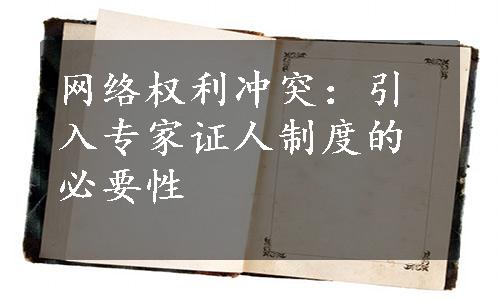 网络权利冲突：引
入专家证人制度的
必要性